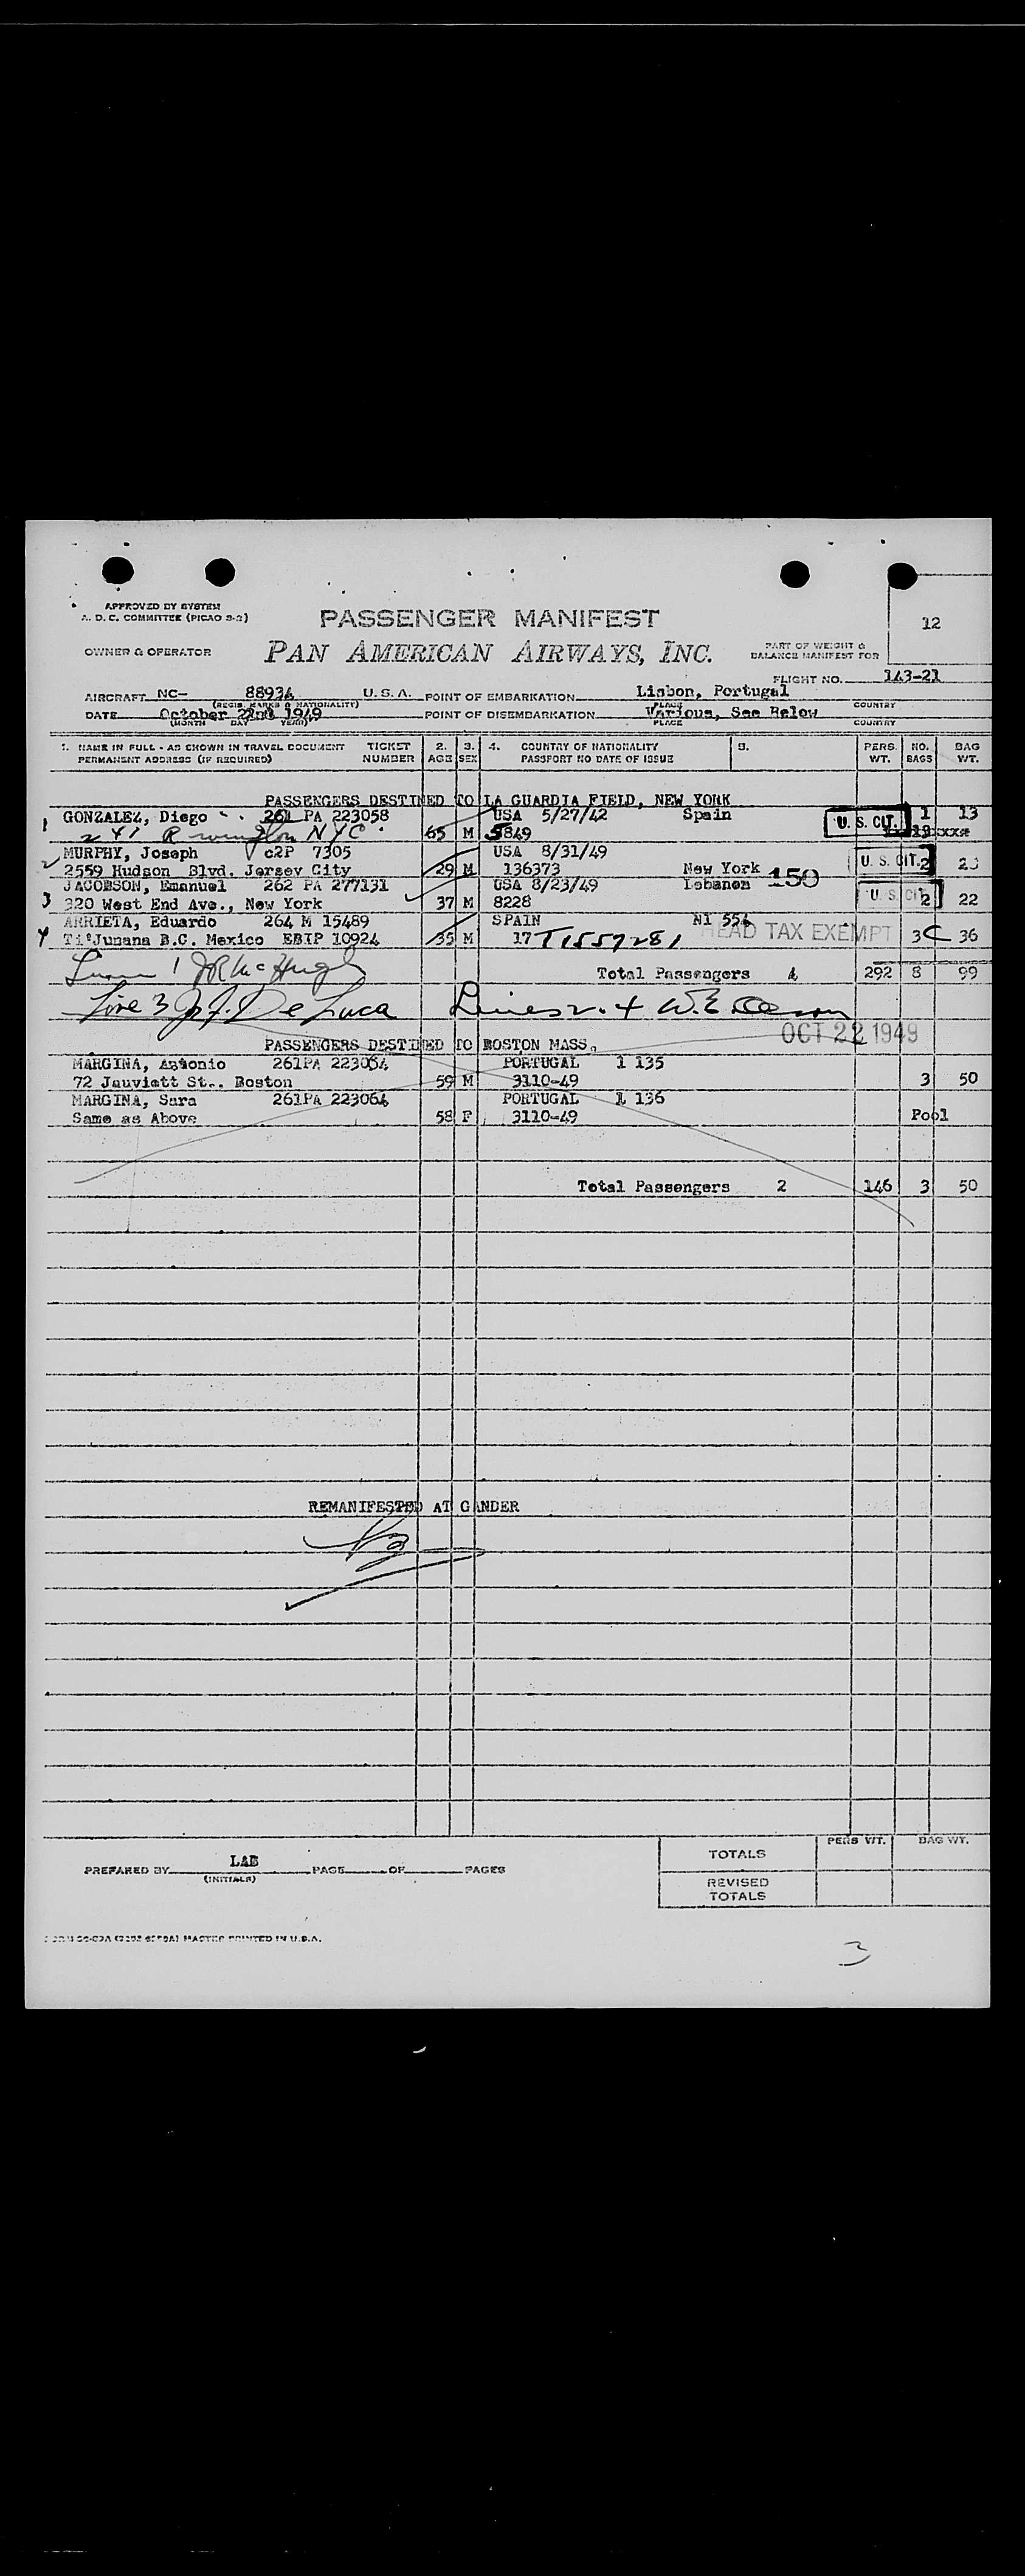 APPROVED BY SYSTEM
A. D. C. COMMITTEE (PICAO S-2)
PASSENGER MANIFEST
12
OWNER & OPERATOR
PAN AMERICAN AIRWAYS, INC.
PART OF WEIGHT &
BALANCE MANIFEST FOR
FLIGHT NO. 143-21
AIRCRAFT NC- 88934 U. S. A. POINT OF EMBARKATION Lisbon, Portugal
(REGIS. MARKS & NATIONALITY) PLACE COUNTRY
DATE October 22nd 1949 POINT OF DISEMBARKATION Various, See Below
(MONTH DAY YEAR) PLACE COUNTRY
1. NAME IN FULL - AS SHOWN IN TRAVEL DOCUMENT TICKET 2. 3. 4. COUNTRY OF NATIONALITY 5. PERS. NO. BAG
PERMANENT ADDRESS (IF REQUIRED) NUMBER AGE SEX PASSPORT NO DATE OF ISSUE WT. BAGS WT.
PASSENGERS DESTINED TO LA GUARDIA FIELD, NEW YORK
1 GONZALEZ, Diego 261 PA 223058 USA 5/27/42 Spain U. S. CIT. 1 13
241 NYC 65 M 5849
2 MURPHY, Joseph c2P 7305 USA 8/31/49
2559 Hudson Blvd. Jersey City 29 M 136373 New York 150 U. S. CIT. 2
JACOBSON, Emanuel 262 PA 277131 USA 8/23/49 Lebanon
3 320 West End Ave., New York 37 M 8228 U. S. CIT. 2 22
ARRIETA, Eduardo 264 M 15489 SPAIN NI 554
4 Ti'Junana B.C. Mexico EBIP 10924 35 M 17 T1557281 HEAD TAX EXEMPT 3 36
1 JR McHugh Total Passengers 4 292 8 99
Line 3 J. F. De Luca Lines 2. 4 W.E.
OCT 22 1949
PASSENGERS DESTINED TO BOSTON MASS.
MARGINA, Antonio 261PA 223054 PORTUGAL 1 135
72 Jauviatt St.. Boston 59 M 3110-49 3 50
MARGINA, Sara 261PA 223064 PORTUGAL 1 136
Same as Above 58 F 3110-49 Pool
Total Passengers 2 146 3 50
REMANIFESTED AT GANDER
PERS WT. BAG WT.
TOTALS
PREPARED BY LAB PAGE OF PAGES
(INITIALS)
REVISED
TOTALS
MASTER PRINTED IN U.S.A.
3